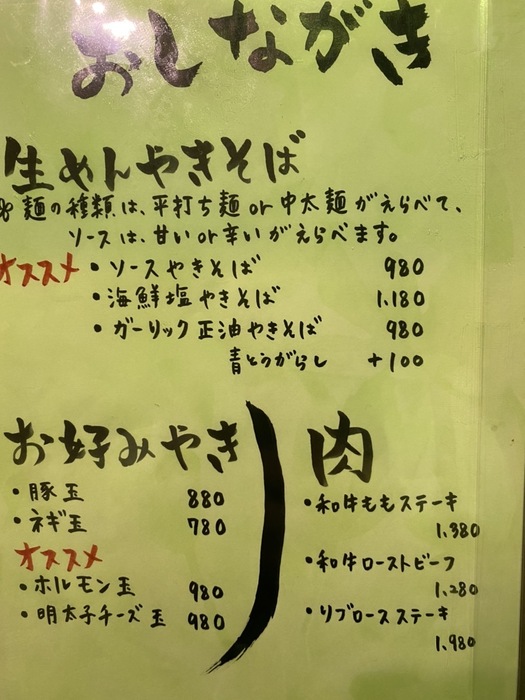 おしながき
生めんやきそば
※麺の種類は、平打ち麺or中太麺がえらべて、
ソースは、甘いor辛いがえらべます。
オススメ・ソースやきそば 980
・海鮮塩やきそば 1.180
・ガーリック正油やきそば 980
青とうがらし +100
お好みやき
・豚玉 880
・ネギ玉 780
オススメ
・ホルモン玉 980
・明太子チーズ玉 980
肉
・和牛ももステーキ
1.380
・和牛ローストビーフ
1.280
・リブロースステーキ
1.980